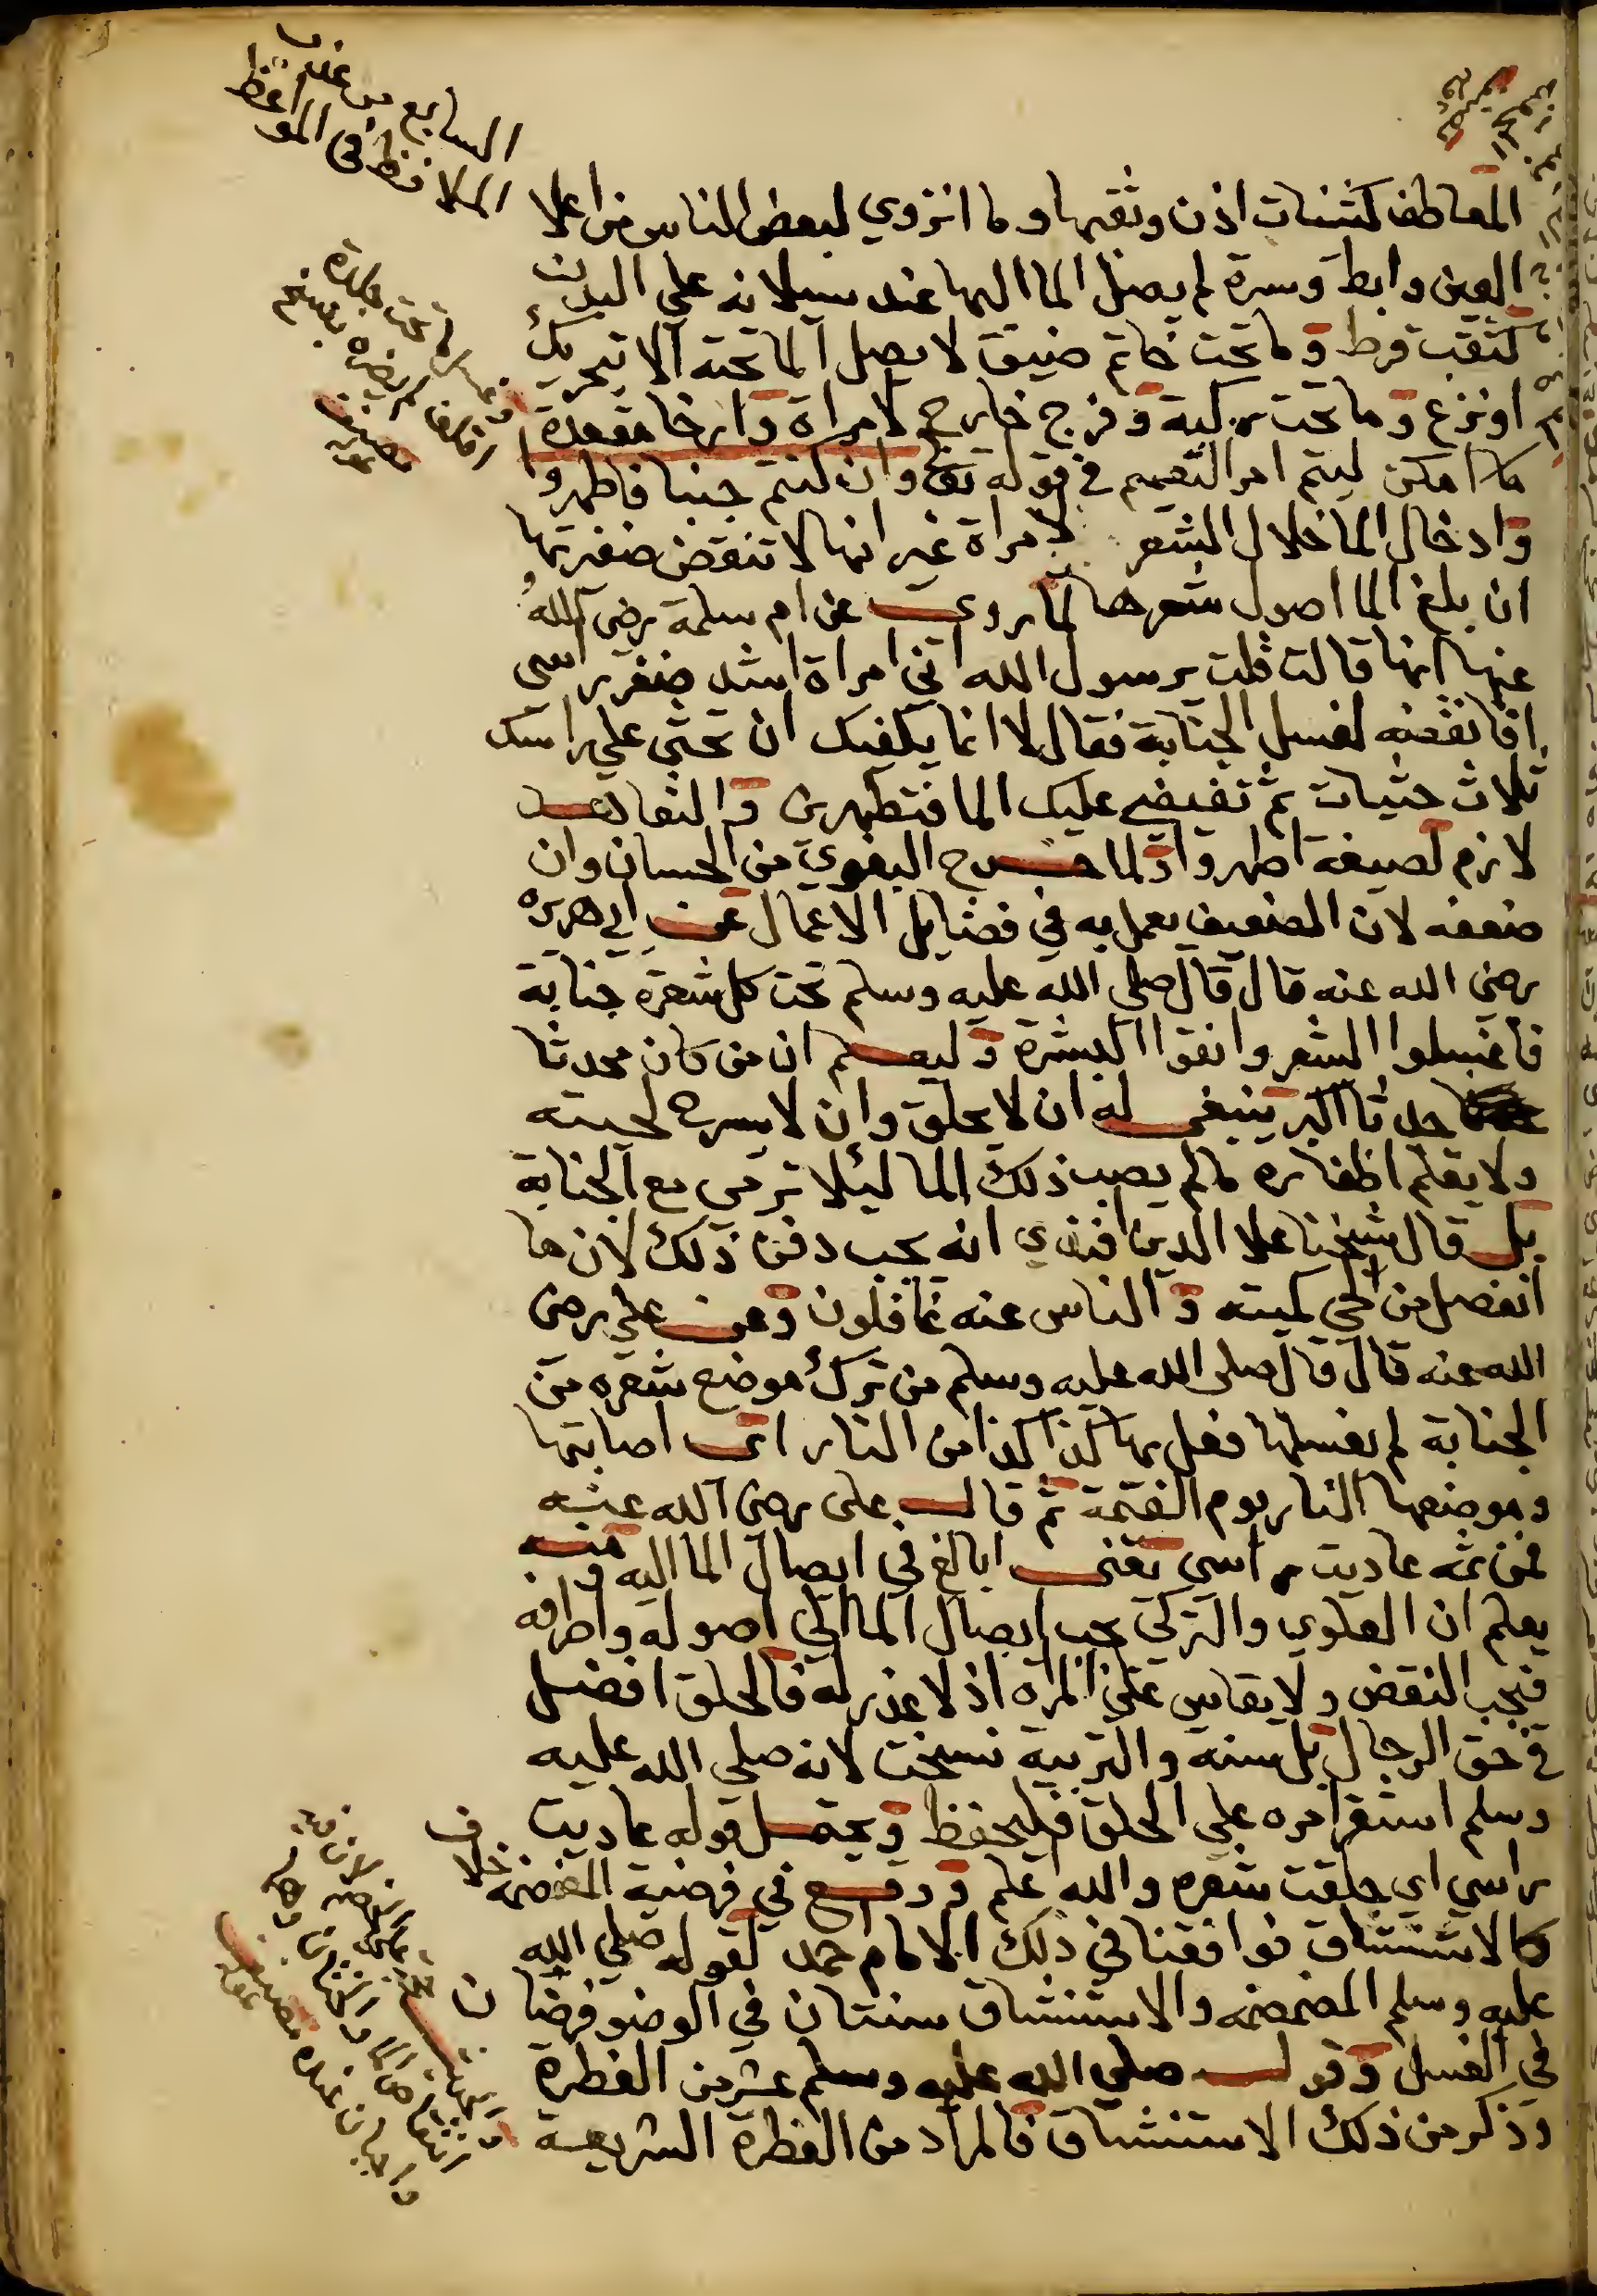 السابع من عقد
الملافظ في المواعظ
المعاطف كثنيات اذن وثقبها وما انزوي لبعض الناس من اعلا
العين وابط وسرة لم يصل الما اليها عند سيلانه علي البدن
كثقب قرط وما تحت خاتم ضيق لا يصل الما تحته الا بتحريك
او نزع وما تحت ركبة وفرج خارج لامراة وارخا مقعدة
ما امكن ليتم امر التعميم في قوله تعا وان كنتم جنبا فاطهروا
وادخال الما خلال الشعر لامراة غير انها لا تنقض ضفيرتها
ان بلغ الما اصول شعرها لما روي عن ام سلمة رضي الله
عنها انها قالت قلت يرسول الله اني امراة اشد ضفر راسي
افانقضه لغسل الجنابة فقال لا انما يكفيك ان تحثي علي راسك
ثلاث حثيات ثم تفيضي عليك الما فتطهرين والتعاهد
لازم لصيغة اطهروا ولما خرج البغوي من الحسان وان
ضعفه لان الضعيف يعمل به في فضايل الاعمال عن ابي هريره
رضي الله عنه قال قال صلي الله عليه وسلم تحت كل شعرة جنابة
فاغسلوا الشعر وانقوا البشرة وليعلم ان من كان محدثا
حدثا اكبر ينبغي له ان لا يحلق وان لا يسرح لحيته
ولا يقلم اظفاره مالم يصب ذلك الما ليئلا ترمي مع الجنابة
بل قال شيخنا علا الدين افندي انه يجب دفن ذلك لان ما
انفصل من الحي كميته والناس عنه غافلون وعن علي رضي
الله عنه قال قال صلى الله عليه وسلم من ترك موضع شعره من
الجنابة لم يغسلها فعل بها كذا كذا من النار اي اصابتها
وموضعها النار يوم القيمة ثم قال علي رضي الله عنه
فمن ثمه عاديت راسي يعني ابالغ في ايصال الما اليه ومنه
يعلم ان العلوي والتركي يجب ايصال الما الي اصوله واطرافه
فيجب النقض ولا يقاس علي المراه اذ لا عذر له فالحلق افضل
في حق الرجال بل سنة والتربية نسخت لانه صلي الله عليه
وسلم استقر امره علي الحلق فليحفظ ويحتمل قوله عاديت
راسي اي حلقت شعره والله اعلم ووقع في فرضية المضمضه خلاف
كالاستنشاق فوافقنا في ذلك الامام احمد لقوله صلي الله
عليه وسلم المضمضه والاستنشاق سنتان في الوضو فرضان
في الغسل وقوله صلي الله عليه وسلم عشر من الفطرة
وذكر من ذلك الاستنشاق فالمراد من الفطرة الشريعة